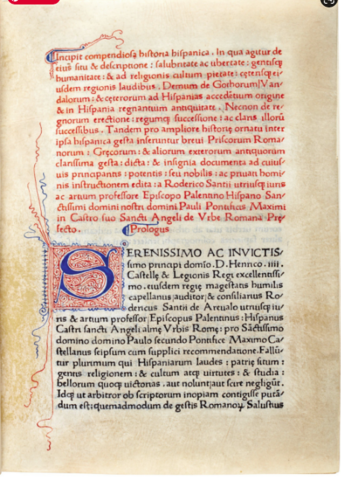 Incipit compendiosa historia hispanica. In qua agitur de
eius situ & descriptione: salubritate ac ubertate: gentisq;
humanitate: & ad religionis cultum pietate: ceterisq; ei/
usdem regionis laudibus. Demum de Gothorum/Van
dalorum: & ceterorum ad Hispanias accedentium origine
& in Hispania regnantium antiquitate. Necnon de re/
gnorum erectione: regumq; successione: ac claris illorū
successibus. Tandem pro ampliore historie ornatu inter
ipsa hispanica gesta inseruntur brevi Priscorum Roma/
norum: Grecorum: & aliorum exterorum antiquorum
clarissima gesta: dicta: & insignia documenta ad cuius/
uis principantis: potentis: seu nobilis: ac privati homi/
nis instructionem edita: a Roderico Santii utriusq; iuris
ac artium professore Episcopo Palentino Hispano San/
ctissimi domini nostri domini Pauli Pontificis Maximi
in Castro suo Sancti Angeli de Vrbe Romana Pre/
fecto. Prologus
SERENISSIMO AC INVICTIS/
simo principi domīo. D. Henrico .iiii.
Castellę & Legionis Regi excellentissi/
mo. eiusdem regię magestatis humilis
capellanus/auditor/& consiliarius Ro/
dericus Santii de Arevalo utriusq; iu/
ris & artium professor Episcopus Palentinus: Hispanus
Castri sancti Angeli almę Vrbis Romę: pro Sāctissimo
domino domino Paulo secundo Pontifice Maximo Ca/
stellanus seipsum cum supplici recommendatione. Fallū/
tur plurimum qui Hispaniarum laudes: patrię situm:
gentis religionem: & cultum atq; virtutes: & studia:
bellorum quoq; victorias. aut nolunt/aut scire negligūt.
Idq; ut arbitror ob scriptorum inopiam contigisse putā/
dum est: quemadmodum de gestis Romanoꝝ Salustius